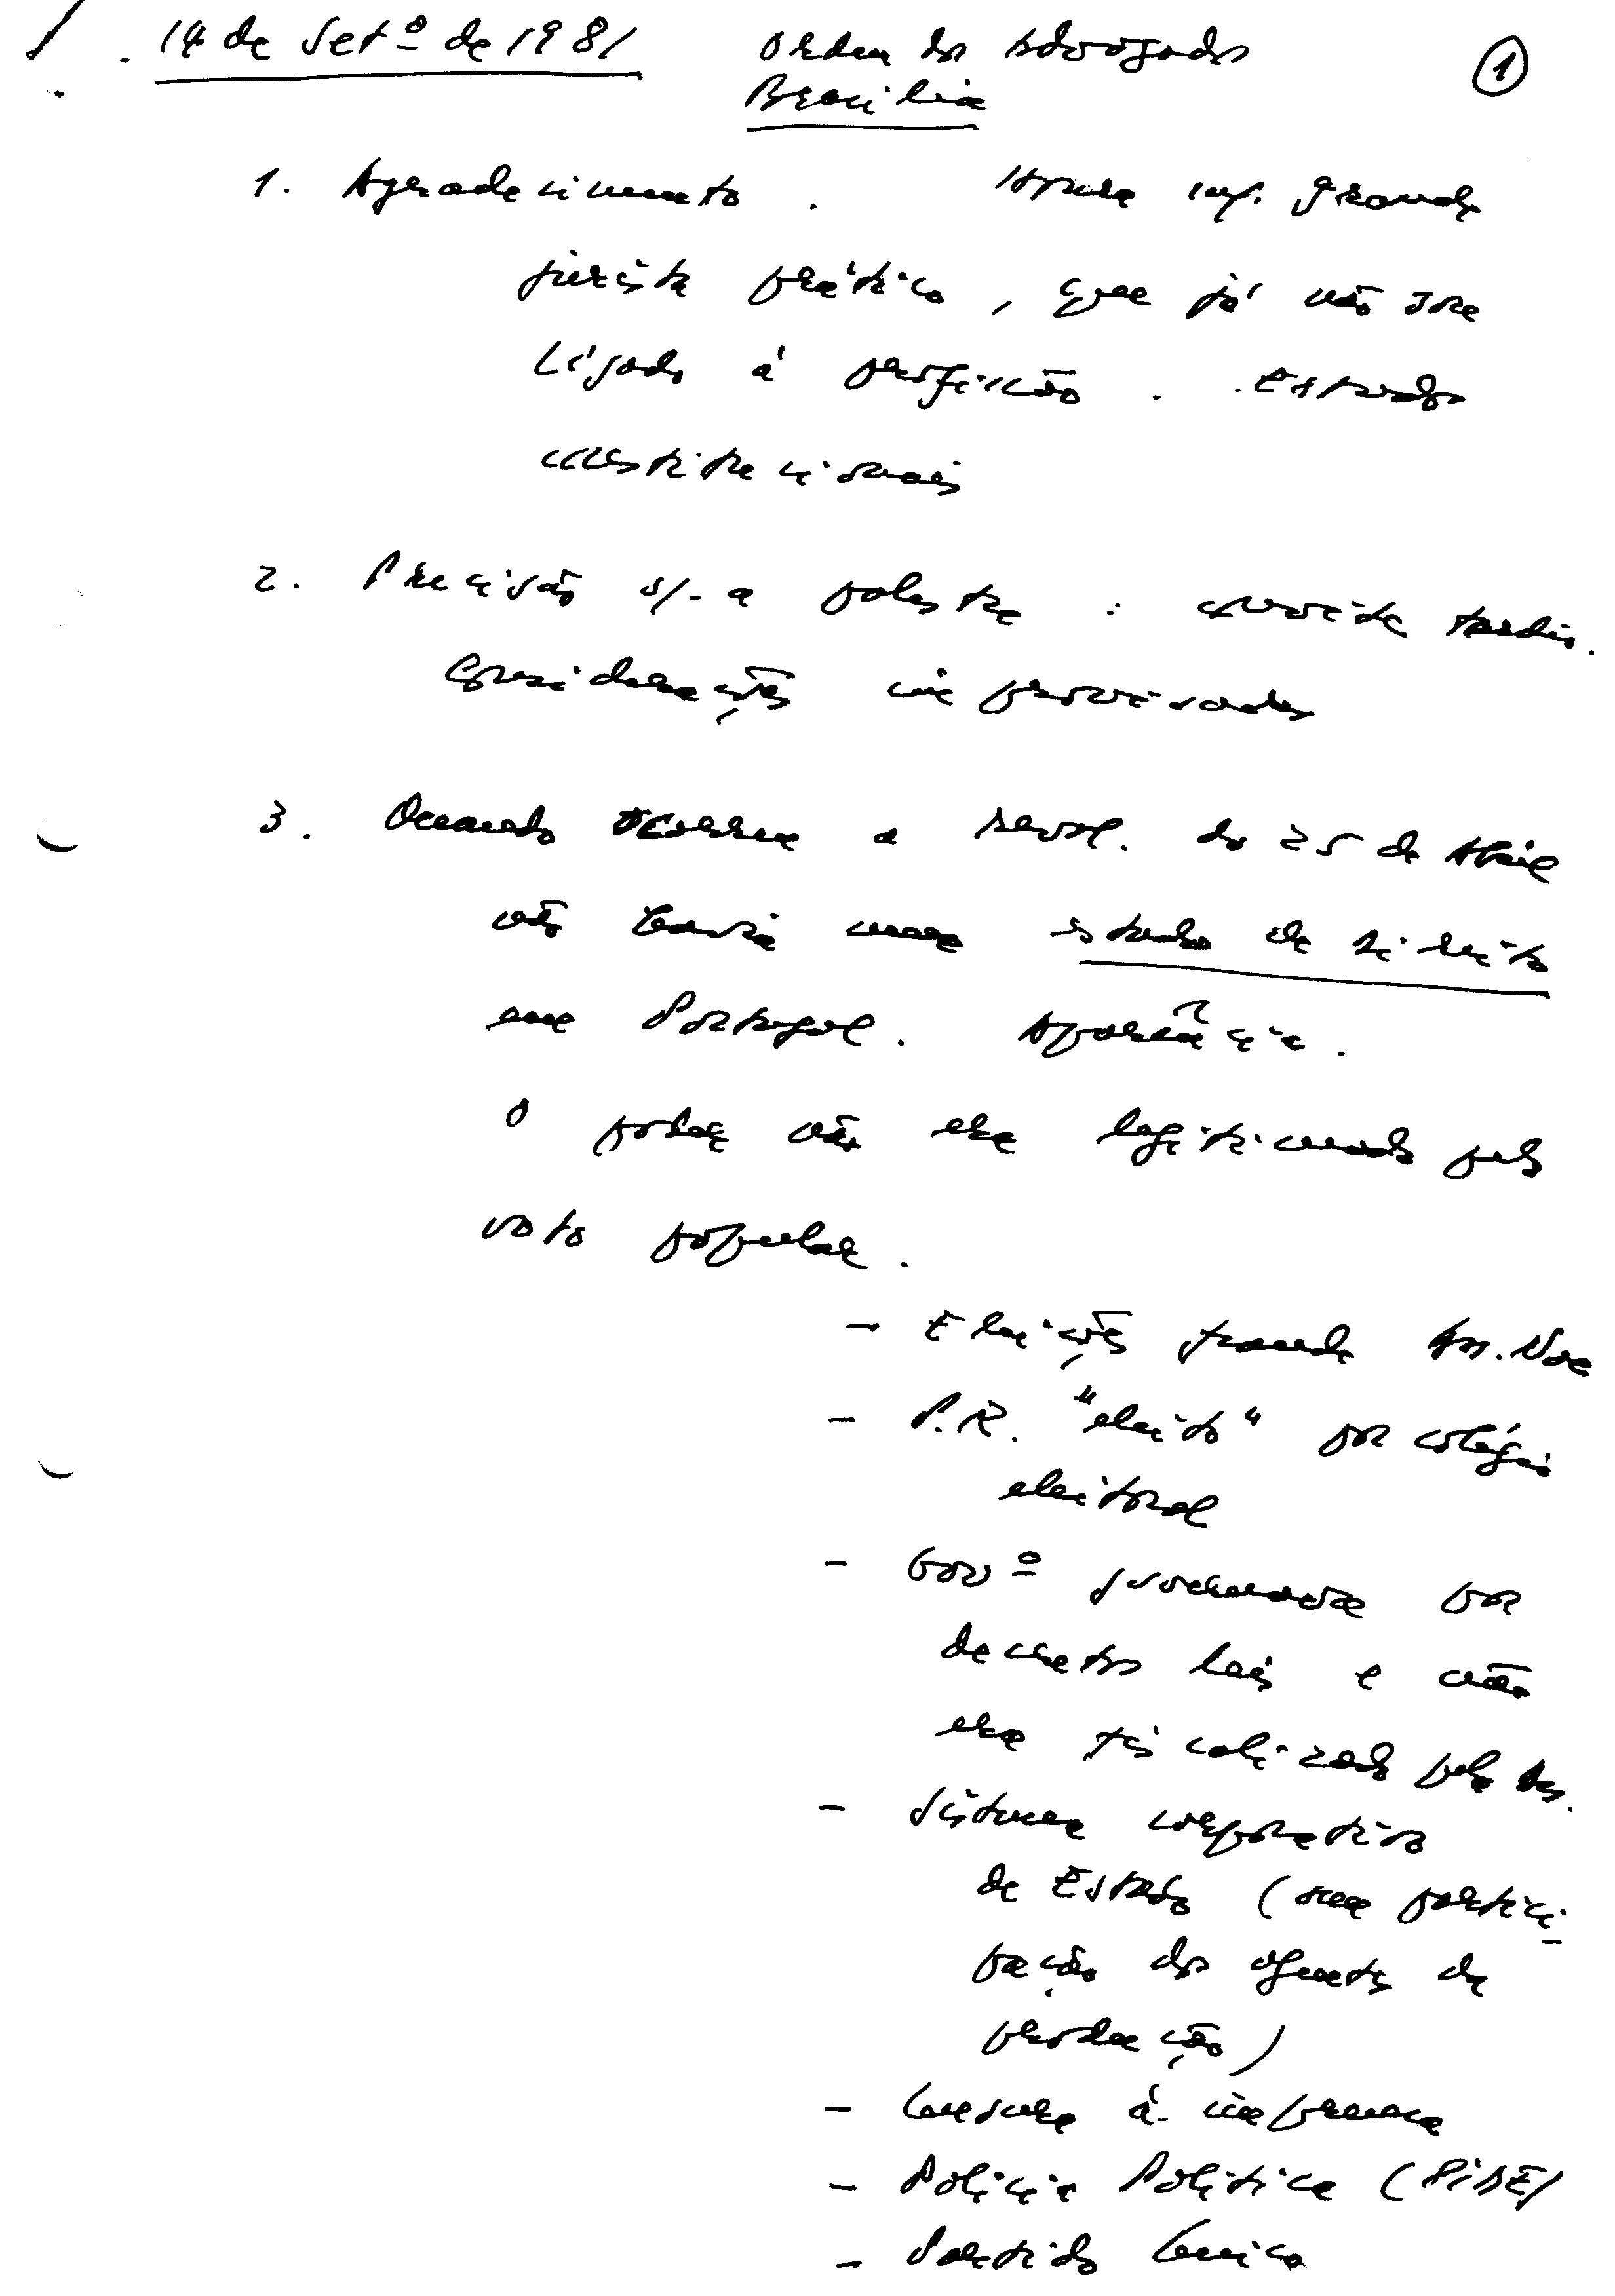 14 de Setº de 1981 Ordem dos Advogados ①
Brasília
1. Agradecimento. Honra grande
jurista prático, que já não
ligado à profissão. Estudos
constitucionais
2. Precisão s/ a palestra: convite tardio.
Considerações improvisadas
3. Quando ocorreu a Revol. do 25 de Abril
não havia um estado de direito
em Portugal. Aparência.
O poder não era legitimado pelo
voto popular.
- Eleições fraude Ass. Nac
- P.R. "eleito" por colégio
eleitoral
- Govº governava por
decretos leis e não
era fiscalizado pela Ass.
- Sistema corporativo
de Estado (sem partici-
pação dos agentes da
produção)
- Censura à imprensa
- Polícia Política (PIDE)
- Partido Único